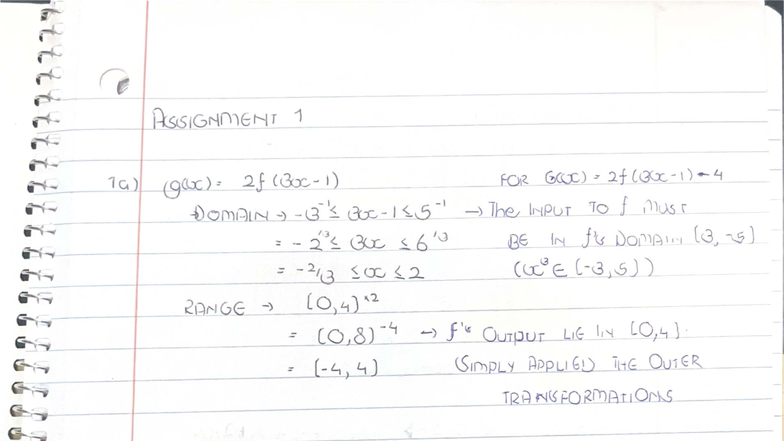 ASSIGNMENT 1
1a) g(x) = 2f(3x-1) FOR G(x) = 2f(3x-1) - 4
DOMAIN → -3⁻¹ ≤ 3x-1 ≤ 5⁻¹ → The INPUT TO f MUST
= -2^{/3} ≤ 3x ≤ 6^{/3} BE IN f's DOMAIN [3, -5]
= -2/3 ≤ x ≤ 2 (x³ ∈ [-3, 5])
RANGE → [0,4]^{×2}
= [0,8]⁻⁴ → f's OUTPUT LIE IN [0,4].
= [-4, 4] (SIMPLY APPLIED THE OUTER
TRANSFORMATIONS